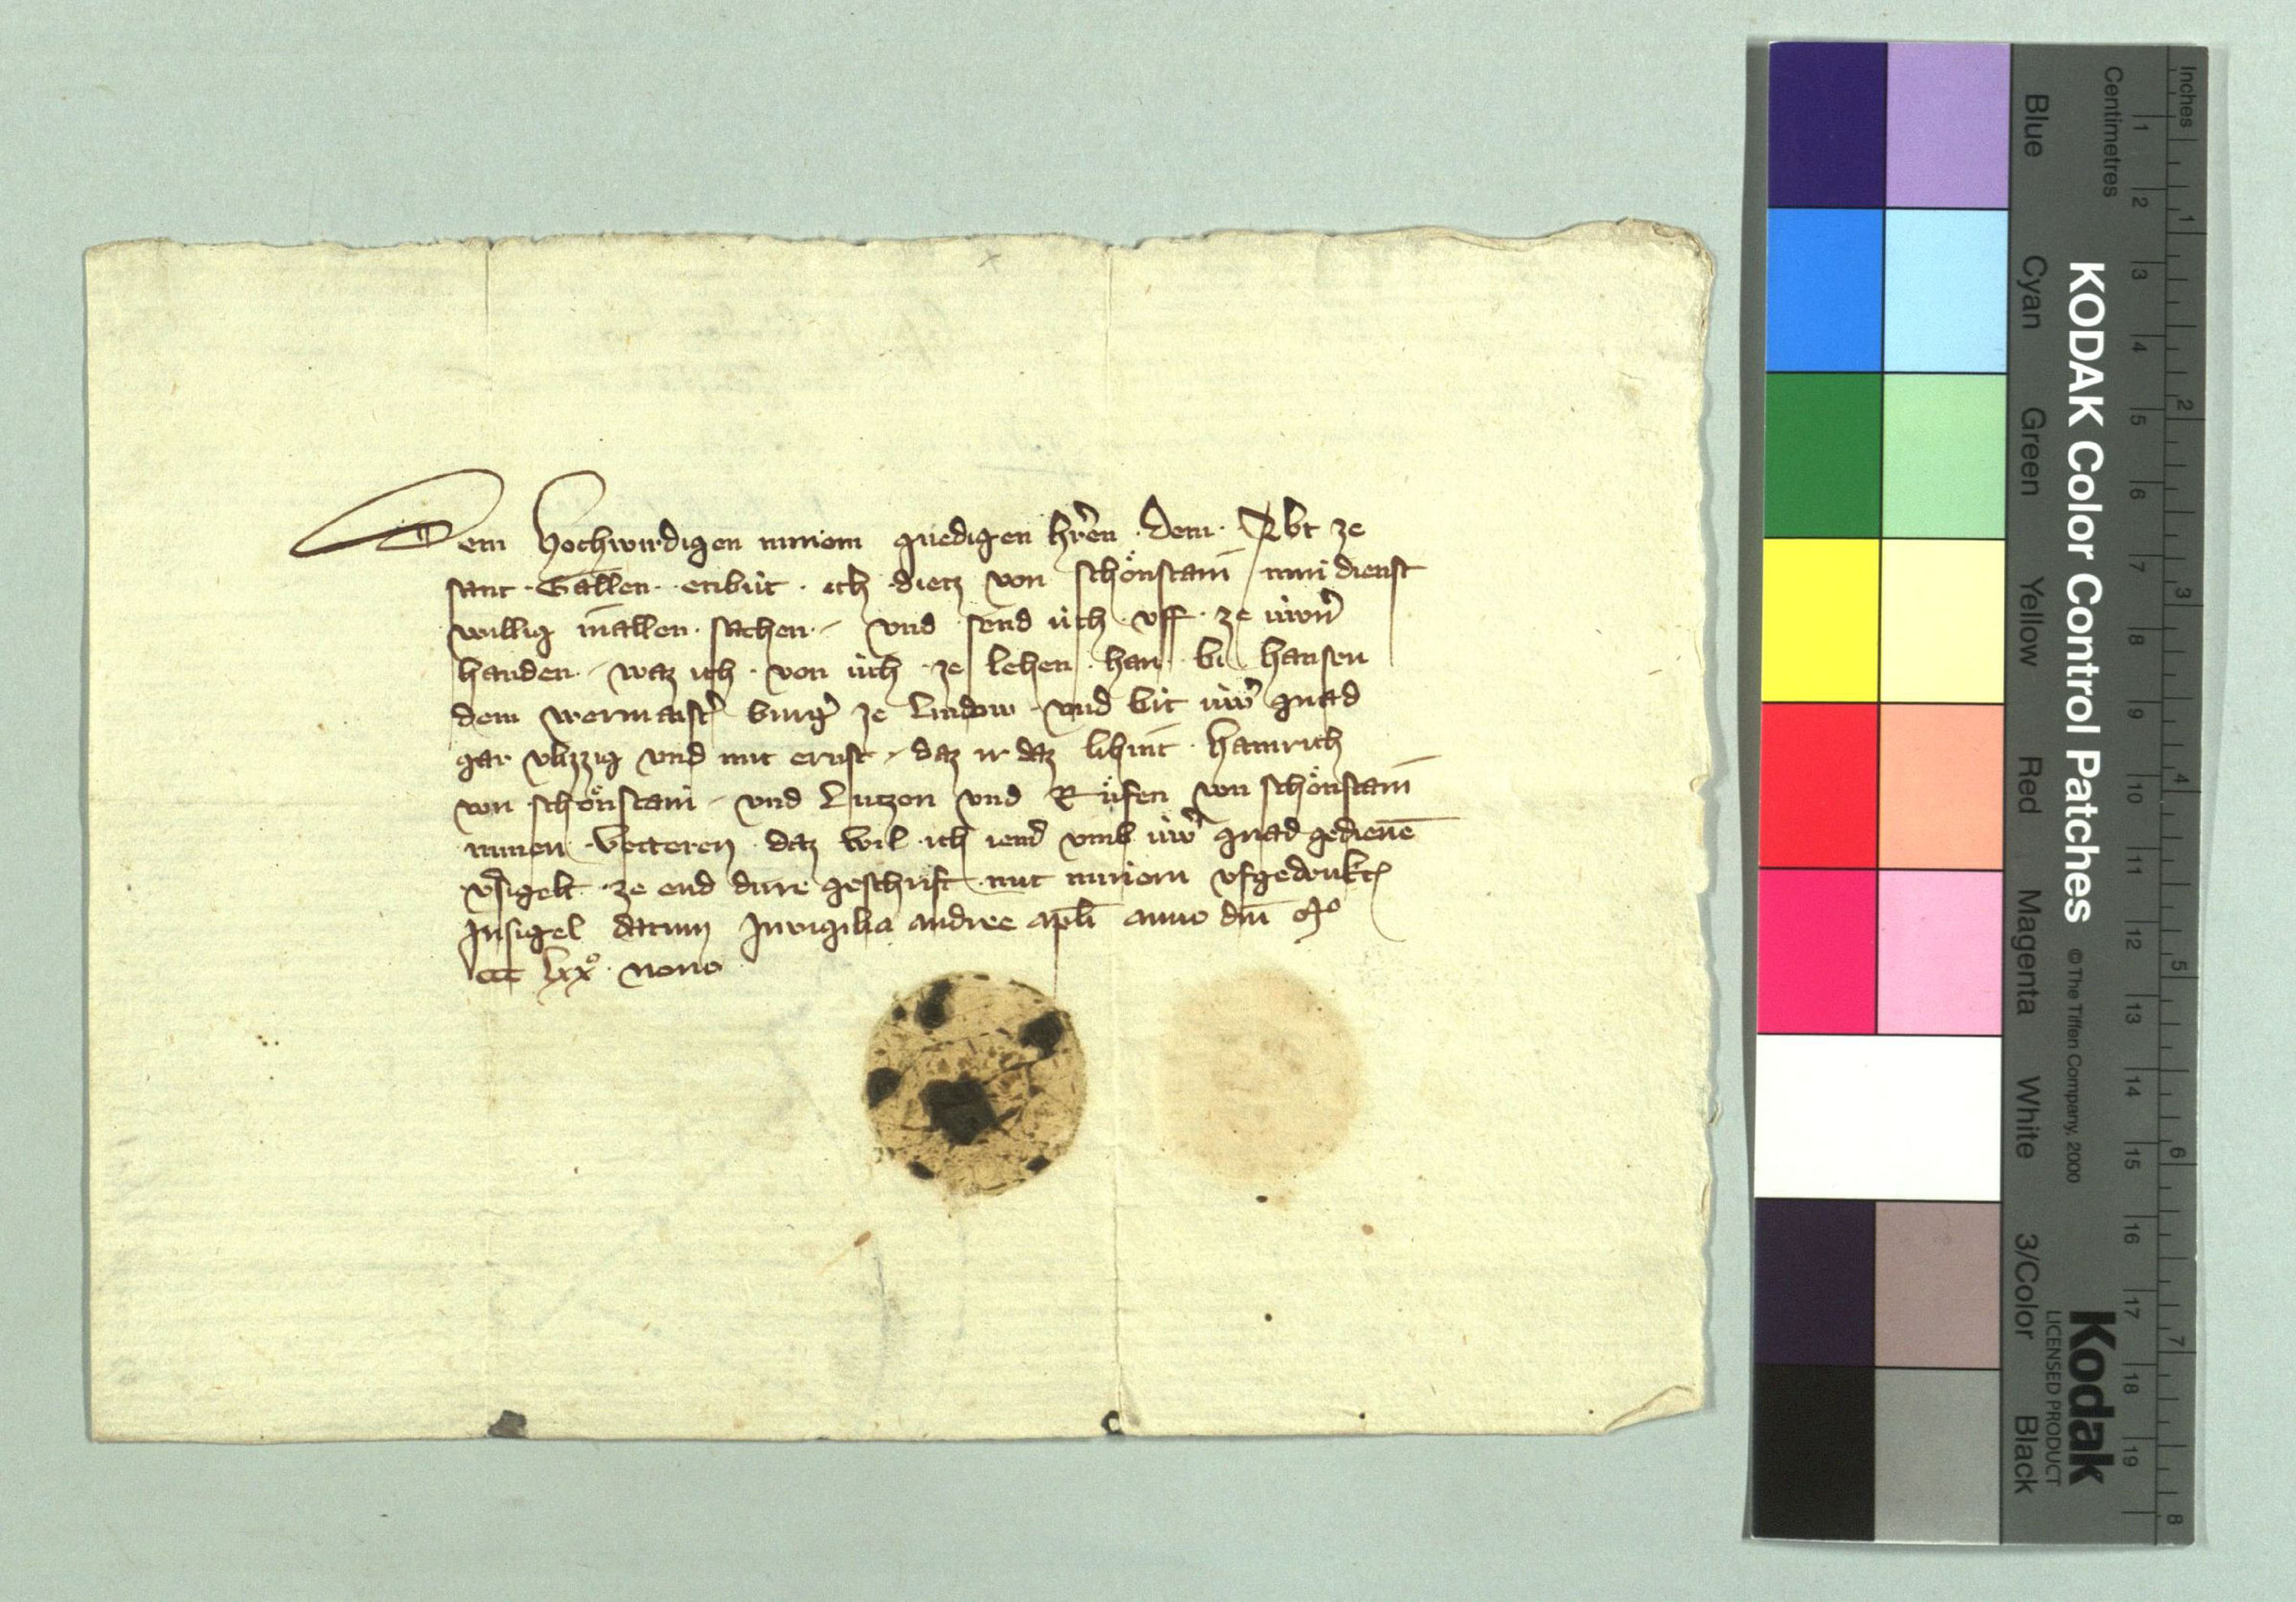 Dem Hochwirdigen minem gnedigen hr̄en dem Abt ze
sant Gallen enbút ich dietz von schönstain min dienst
willig in allen sachen und send úch uff ze úwrn
handen waz ich von úch ze lehen han bi hansen
dem wermaistr burgr ze Lindow und bit úwr gnad
gar vlizzig und mit ernst daz ir daz lihint hainrich
von schönstain und Lutzen und Rüfen von schönstain
minen vetteren daz wil ich iemr umb úwr gnad gedienē
vrsigelt ze end dirre geschrift mit minem ufgedrukt
Insigel datum In vigilia andree apli anno dni Mo
ccc lxxo nono
KODAK Color Control Patches © The Tiffen Company, 2000
Kodak
LICENSED PRODUCT
Inches 1 2 3 4 5 6 7 8
Centimetres 1 2 3 4 5 6 7 8 9 10 11 12 13 14 15 16 17 18 19
Blue Cyan Green Yellow Red Magenta White 3/Color Black